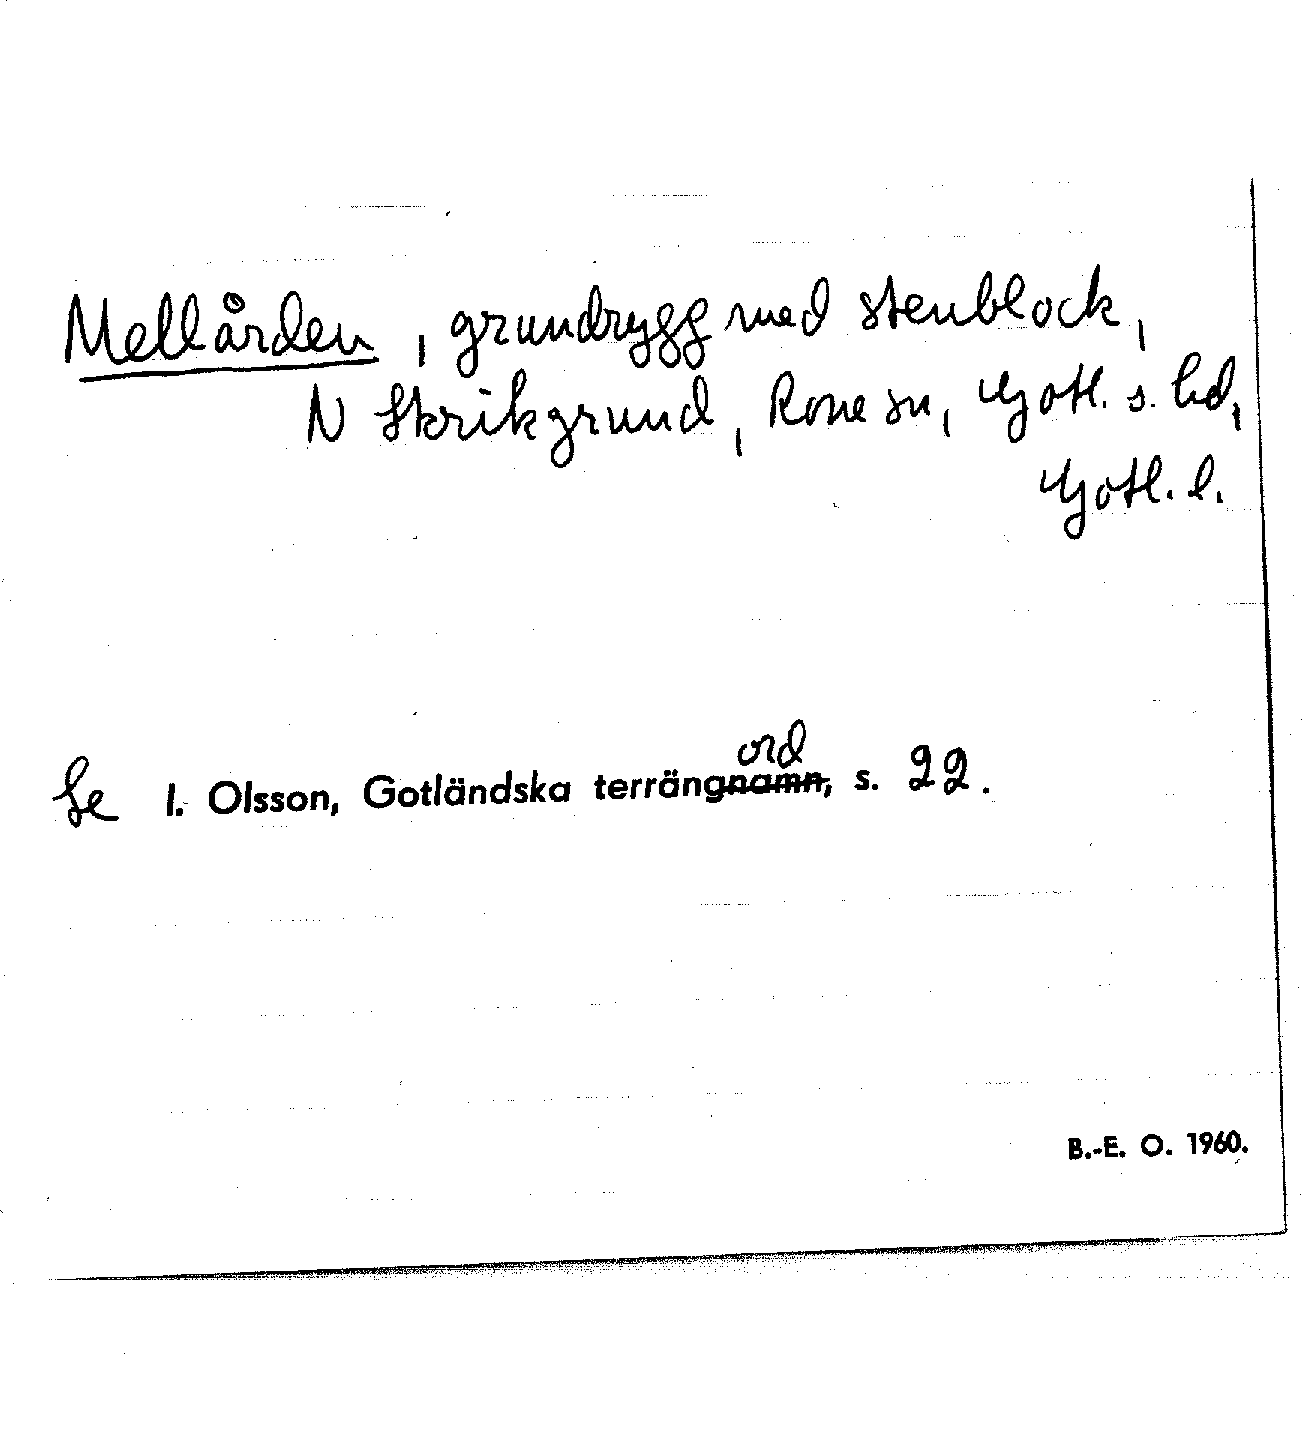 Mellården, grundrygg med stenblock,
N Skrikgrund, Rone sn, Gotl. s. hd,
Gotl. l.
ord
Se I. Olsson, Gotländska terrängnamn, s. 22.
B.-E. O. 1960.